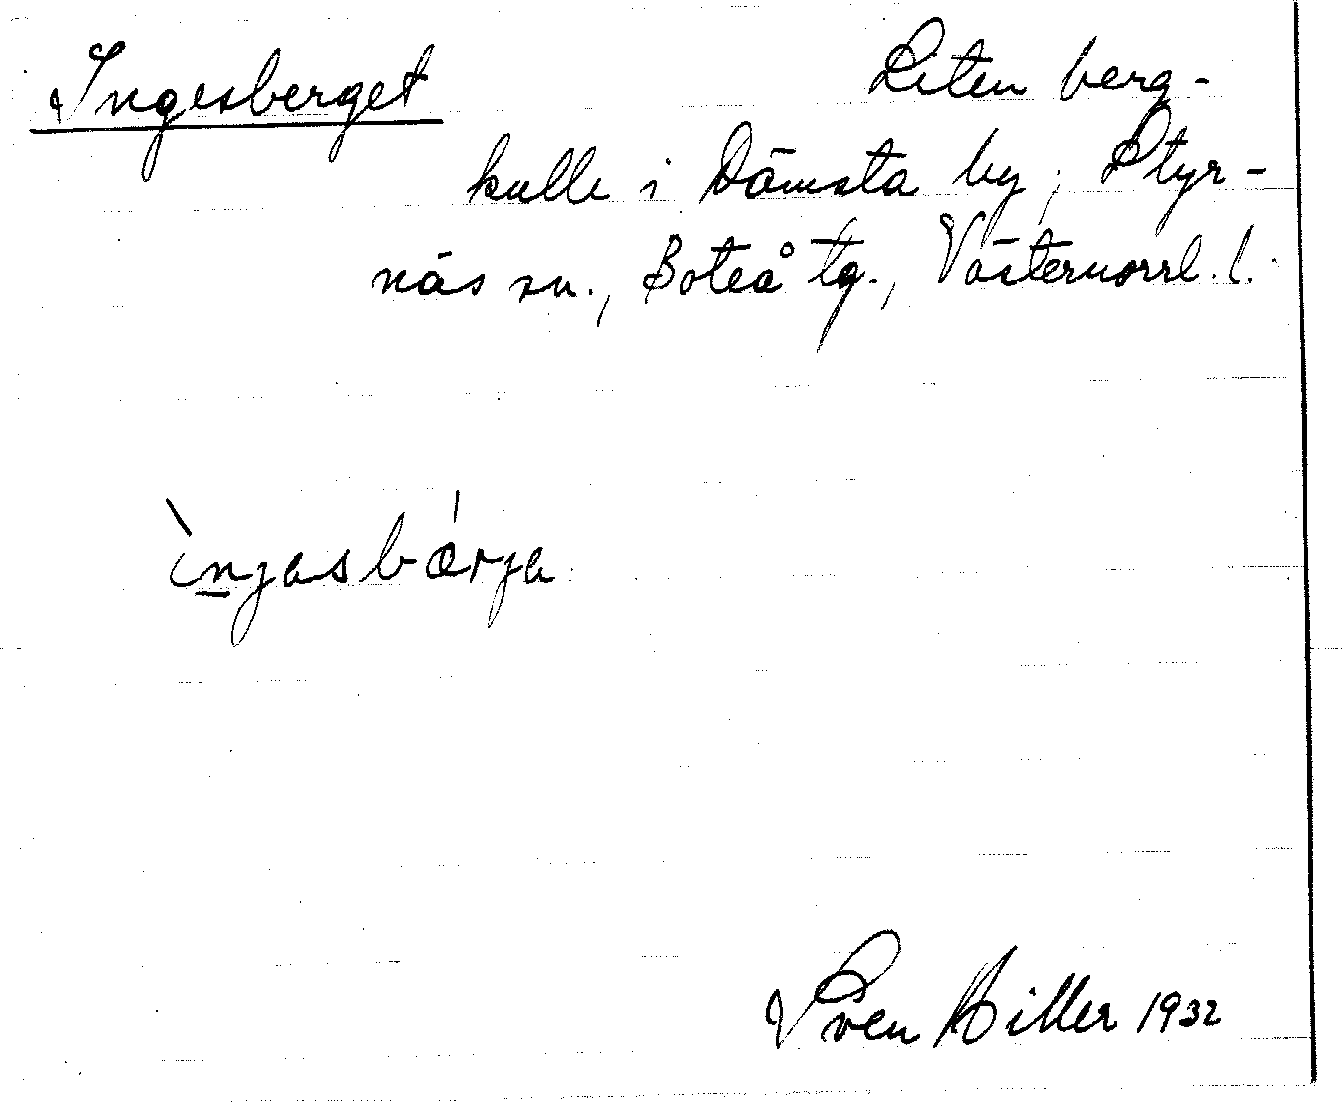 Ingesberget Liten berg-
kulle i Dämsta by, Styr-
näs sn., Boteå tg., Västernorrl. l.
ìnjasbǽrja
Sven Hiller 1932